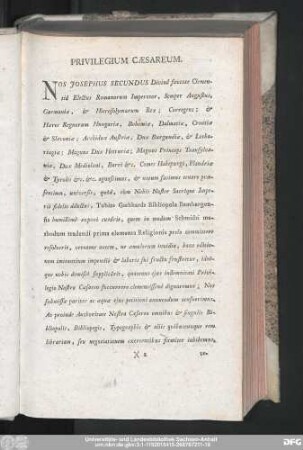 PRIVILEGIUM CÆSAREUM.
NOS JOSEPHUS SECUNDUS Divinâ favente Clemen-
tiâ Electus Romanorum Imperator, Semper Augustus,
Germaniæ, & Hierosolymarum Rex; Coregens; &
Heres Regnorum Hungariæ, Bohemiæ, Dalmatiæ, Croatiæ
& Slavoniæ; Archidux Austriæ, Dux Burgundiæ, & Lotha-
ringiæ; Magnus Dux Hetruriæ; Magnus Princeps Transylva-
niæ, Dux Mediolani, Barri &c. Comes Habspurgi, Flandriæ
& Tyrolis &c. &c. agnoscimus, & notum facimus tenore præ-
sentium, universis, quòd, cùm Nobis Noster Sacrique Impe-
rii fidelis dilectus, Tobias Göbhardt Bibliopola Bambergen-
sis humillimè exponi curavit, quem in modum
methodum tradendi prima elementa Religionis prelo committere
resolverit, vereatur autem, ne æmulorum invidia, hanc editio-
nem imitantium impendiis & laboris sui fructu frustretur, ide-
que nobis demissè supplicârit, quatenus ejus indemnitati Privile-
gio Nostro Cæsareo succurrere clementissimè dignaremur; Nos
submissis pariter ac æquis ejus petitioni annuendum censuerimus.
Ac proinde Authoritate Nostra Cæsarea omnibus & singulis Bi-
bliopolis, Bibliopegis, Typographis & aliis quibuscunque rem
librariam, seu negotiationem exercentibus firmiter inhibemus,
X 2
ne-
Universitäts- und Landesbibliothek Sachsen-Anhalt
DFG